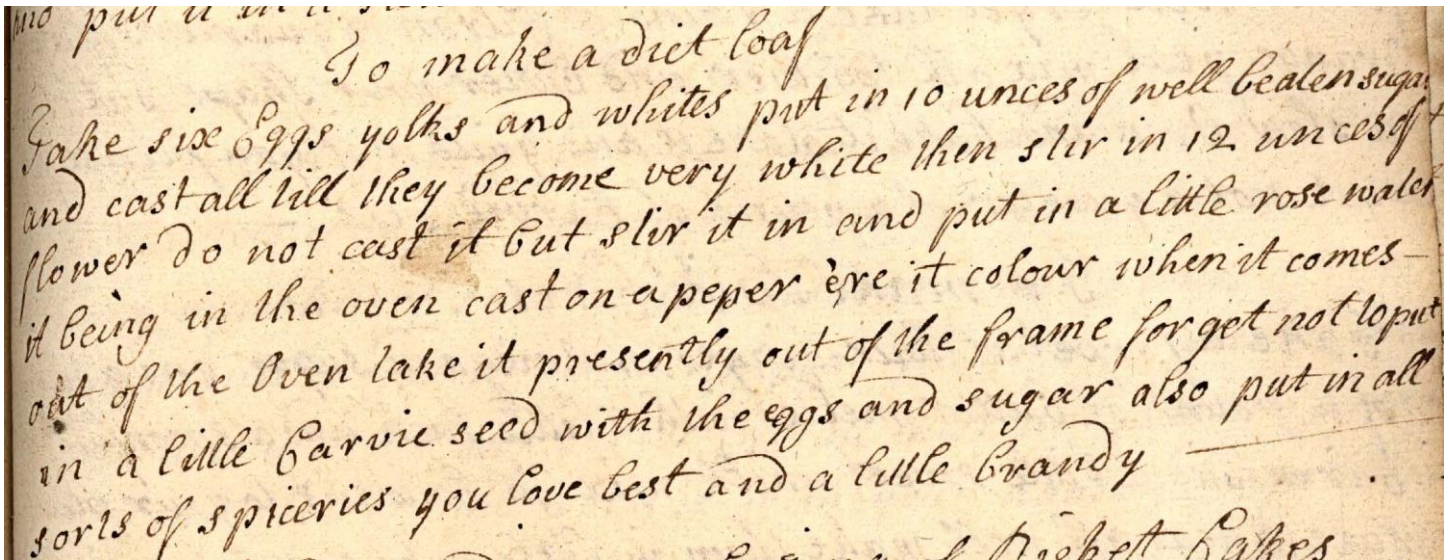 and put it in a
To make a diet loaf
Take six Eggs yolks and whites put in 10 unces of well beaten sugar
and cast all till they become very white then stir in 12 unces of
flower do not cast it but stir it in and put in a little rose water
it being in the oven cast on a peper ere it colour when it comes –
out of the Oven take it presently out of the frame forget not to put
in a little Carvie seed with the eggs and sugar also put in all
sorts of spiceries you love best and a little brandy
of Ricket Cakes